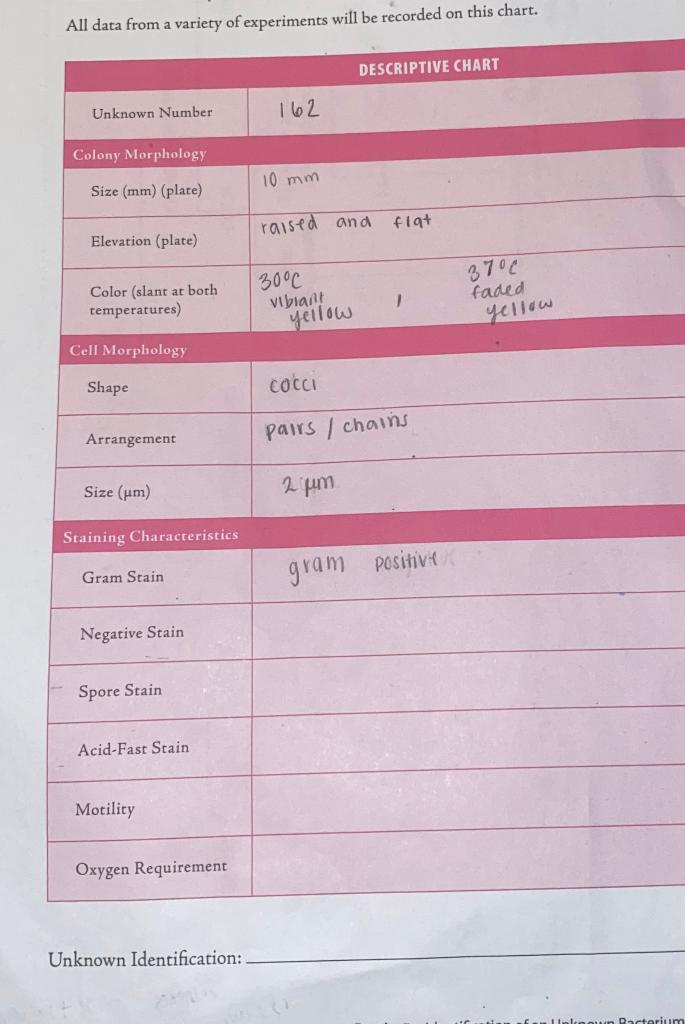 All data from a variety of experiments will be recorded on this chart.
DESCRIPTIVE CHART
Unknown Number 162
Colony Morphology
Size (mm) (plate) 10 mm
Elevation (plate) raised and flat
Color (slant at both temperatures) 30°C vibrant yellow , 37°C faded yellow
Cell Morphology
Shape cocci
Arrangement pairs / chains
Size (µm) 2 µm
Staining Characteristics
Gram Stain gram positive
Negative Stain
Spore Stain
Acid-Fast Stain
Motility
Oxygen Requirement
Unknown Identification:
Unknown Bacterium